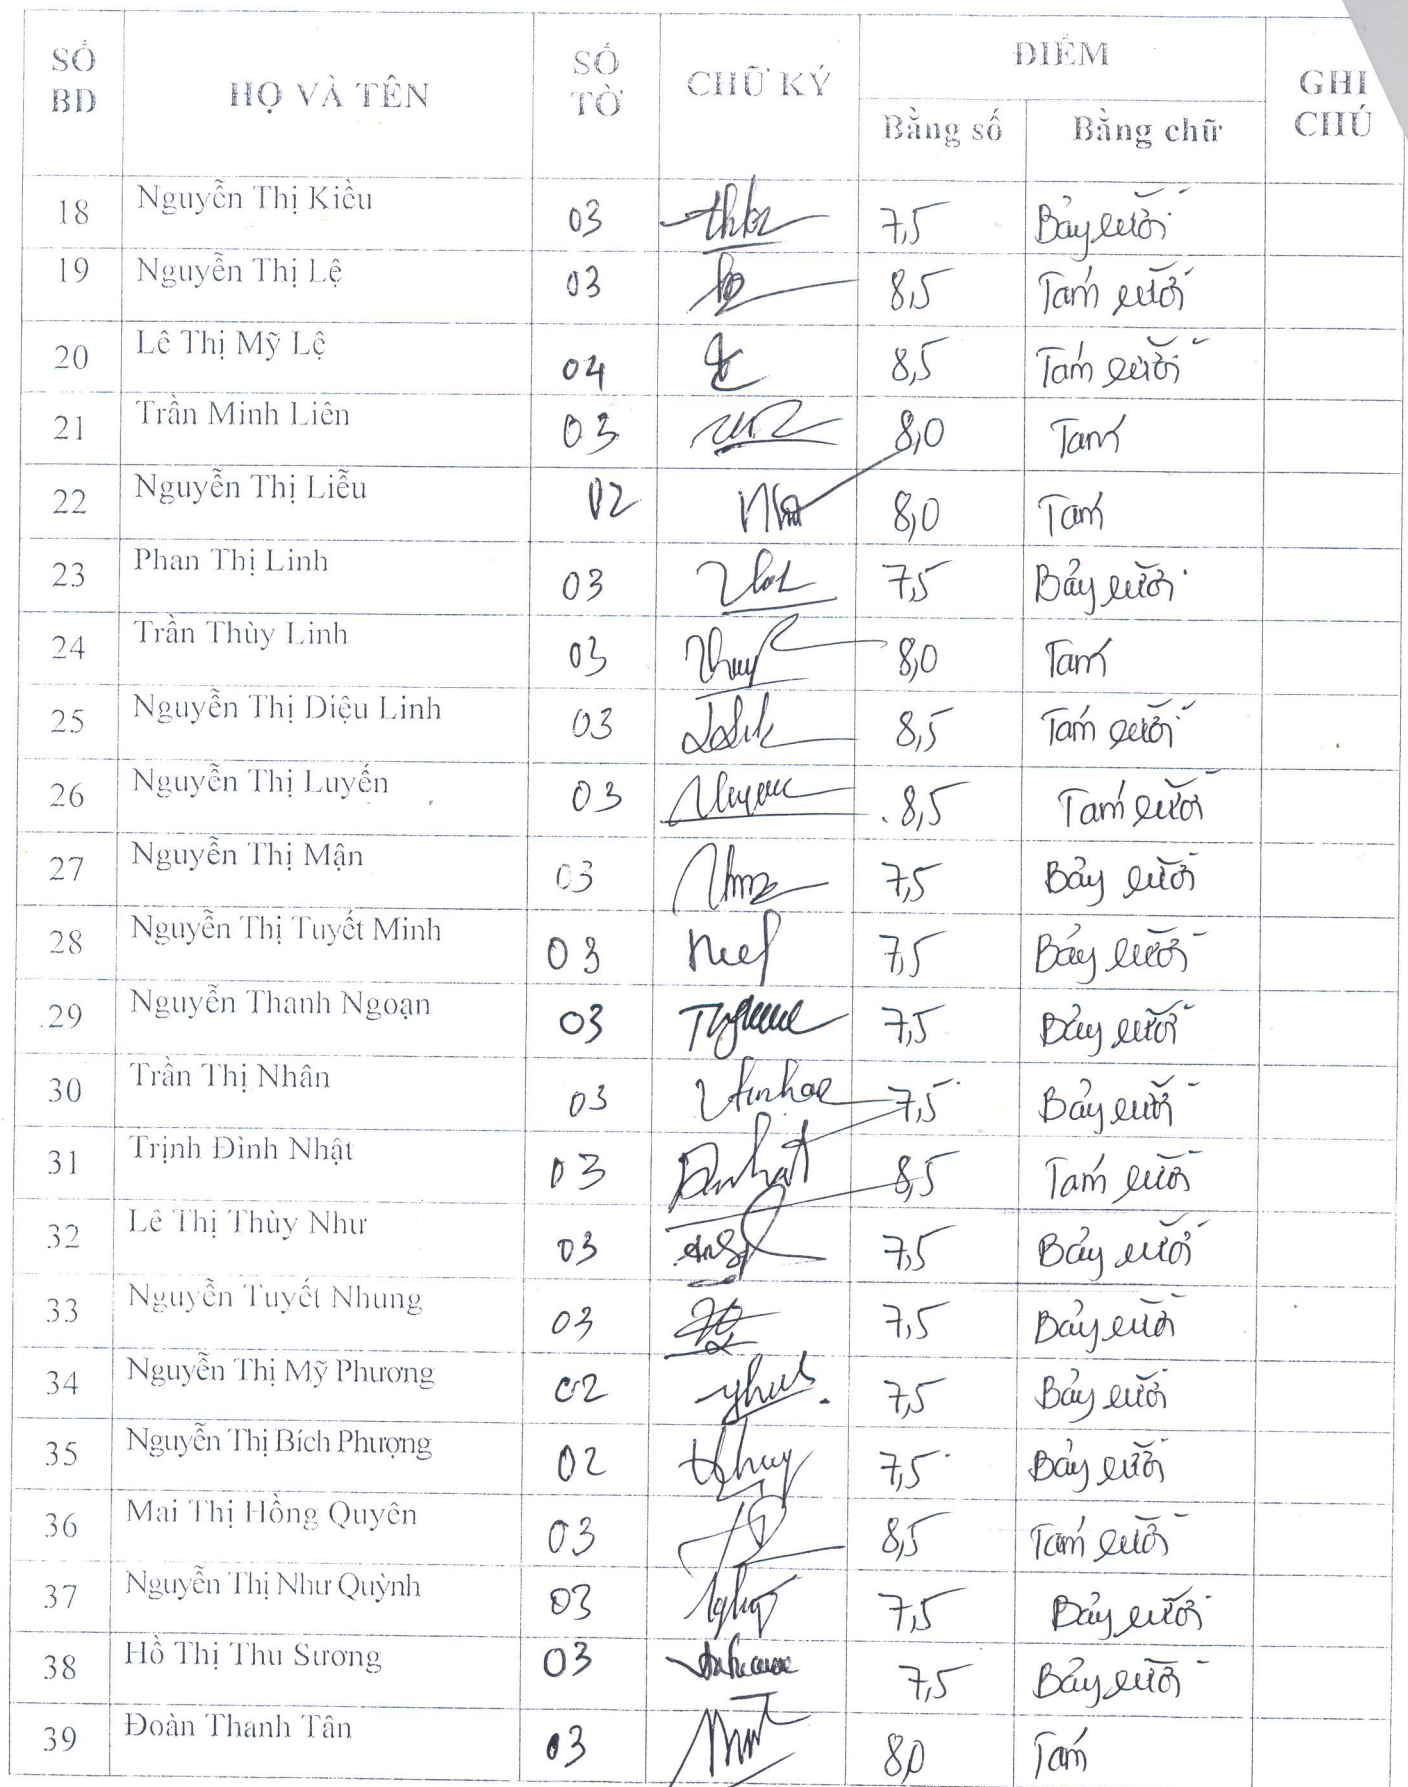 SỐ BD HỌ VÀ TÊN SỐ TỜ CHỮ KÝ ĐIỂM GHI CHÚ
Bằng số Bằng chữ
18 Nguyễn Thị Kiều 03 7,5 Bảy rưỡi
19 Nguyễn Thị Lệ 03 8,5 Tám rưỡi
20 Lê Thị Mỹ Lệ 04 8,5 Tám rưỡi
21 Trần Minh Liên 03 8,0 Tám
22 Nguyễn Thị Liễu 02 8,0 Tám
23 Phan Thị Linh 03 7,5 Bảy rưỡi
24 Trần Thùy Linh 03 8,0 Tám
25 Nguyễn Thị Diệu Linh 03 8,5 Tám rưỡi
26 Nguyễn Thị Luyến 03 8,5 Tám rưỡi
27 Nguyễn Thị Mận 03 7,5 Bảy rưỡi
28 Nguyễn Thị Tuyết Minh 03 7,5 Bảy rưỡi
29 Nguyễn Thanh Ngoạn 03 7,5 Bảy rưỡi
30 Trần Thị Nhân 03 7,5 Bảy rưỡi
31 Trịnh Đình Nhật 03 8,5 Tám rưỡi
32 Lê Thị Thùy Như 03 7,5 Bảy rưỡi
33 Nguyễn Tuyết Nhung 03 7,5 Bảy rưỡi
34 Nguyễn Thị Mỹ Phương 02 7,5 Bảy rưỡi
35 Nguyễn Thị Bích Phượng 02 7,5 Bảy rưỡi
36 Mai Thị Hồng Quyên 03 8,5 Tám rưỡi
37 Nguyễn Thị Như Quỳnh 03 7,5 Bảy rưỡi
38 Hồ Thị Thu Sương 03 7,5 Bảy rưỡi
39 Đoàn Thanh Tân 03 8,0 Tám